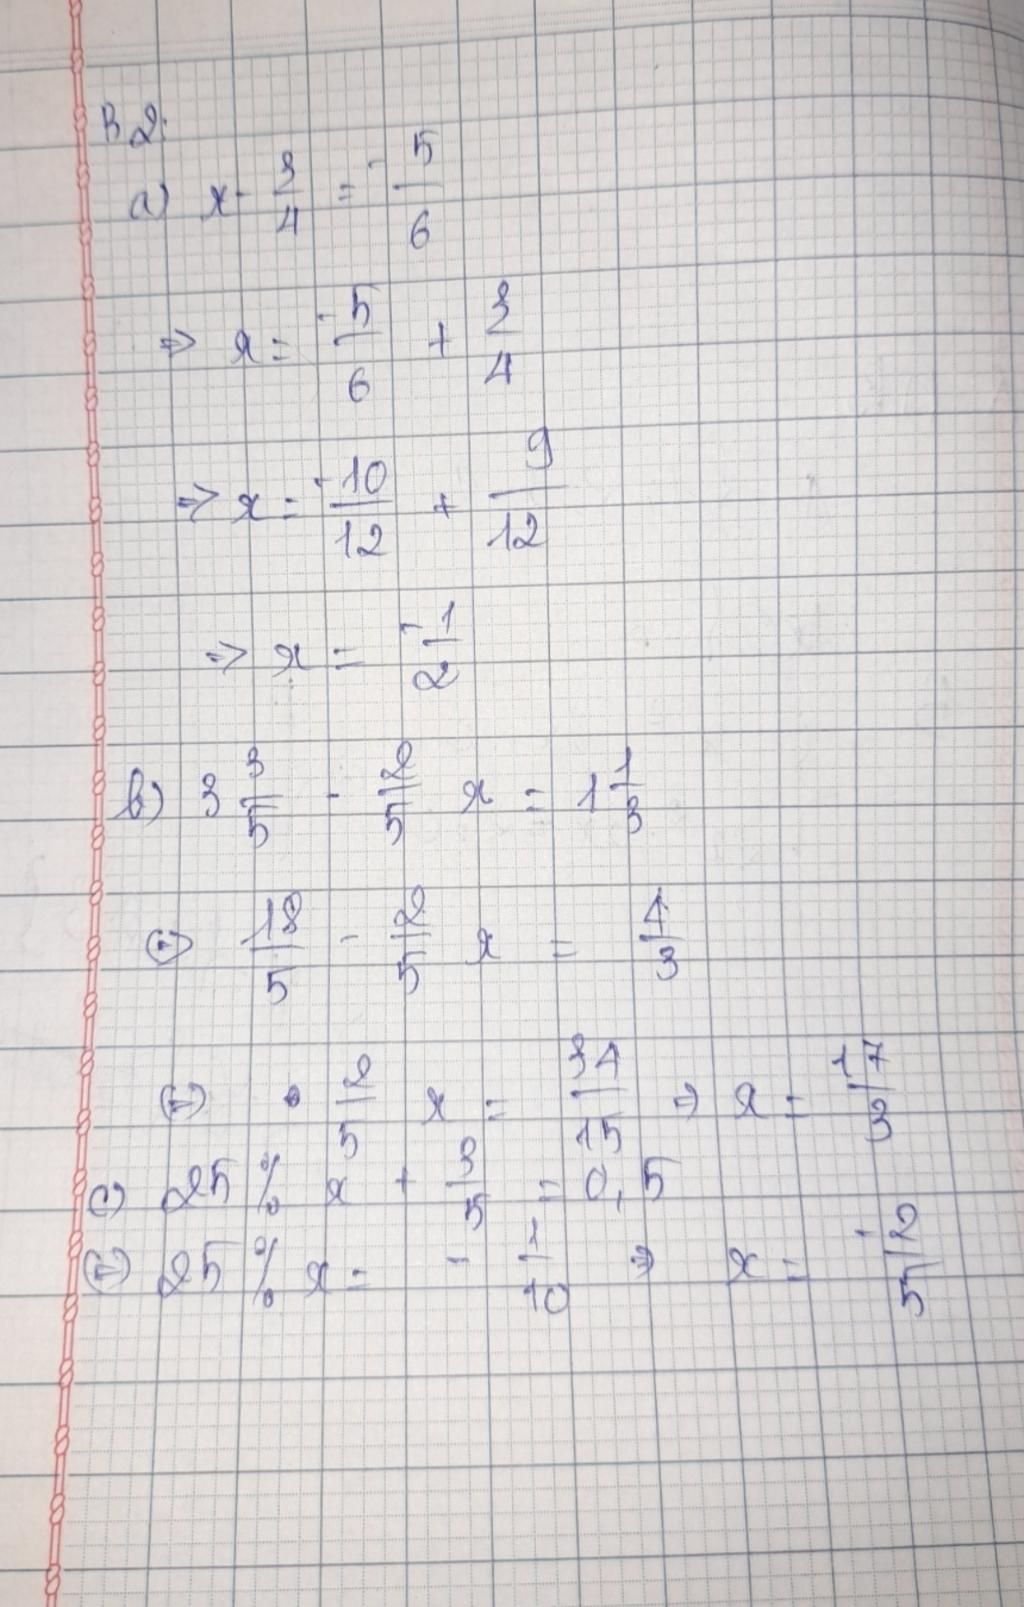 B2:
a) x - 3/4 = -5/6
=> x = -5/6 + 3/4
=> x = -10/12 + 9/12
=> x = -1/2
b) 3 3/5 - 2/5 x = 1 1/3
(=) 18/5 - 2/5 x = 4/3
(=) 2/5 x = 34/15 => x = 17/3
c) 25% x + 3/5 = 0,5
(=) 25% x = - 1/10 => x = -2/5